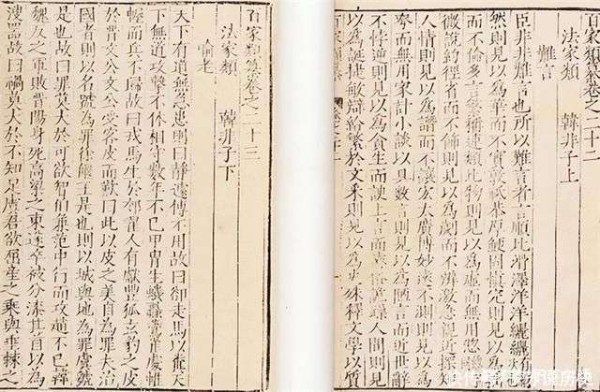 百家類纂卷之二十二
法家類 韓非子上
難言
臣非非難言也所以難言者言順比滑澤洋洋纚纚
然則見以為華而不實敦祗恭厚鯁固慎完則見以為拙
而不倫多言繁稱連類比物則見以為虛而無用惣
微說約徑省而不飾則見以為劌而不辯激急親近探知
人情則見以為譖而不讓宏大廣博妙遠不測則見以為
夸而無用家計小談以具數言則見以為陋言而近世辭
不悖逆則見以為貪生而諛上言而遠俗詭躁人間則見
以為誕捷敏辯給繁於文采則見以為史殊釋文學以質
百家類纂卷之二十三
法家類 韓非子下
喻老
天下有道無急患則曰靜遽傳不用故曰卻走馬以糞天
下無道攻擊不休相守數年不已甲冑生蟣蝨鷰雀處帷
幄而兵不歸故曰戎馬生於郊翟人有獻豐狐玄豹之皮
於晉文公文公受客皮而歎曰此以皮之美自為罪治
國者則以名號為罪徐偃王是也則以城與地為罪虞虢
是也故曰罪莫大於可欲智伯兼范中行而攻趙不已韓
魏反之軍敗晉陽身死高梁之東遂卒被分漆其首以為
溲器故曰禍莫大於不知足虞君欲屈產之乘與垂棘之